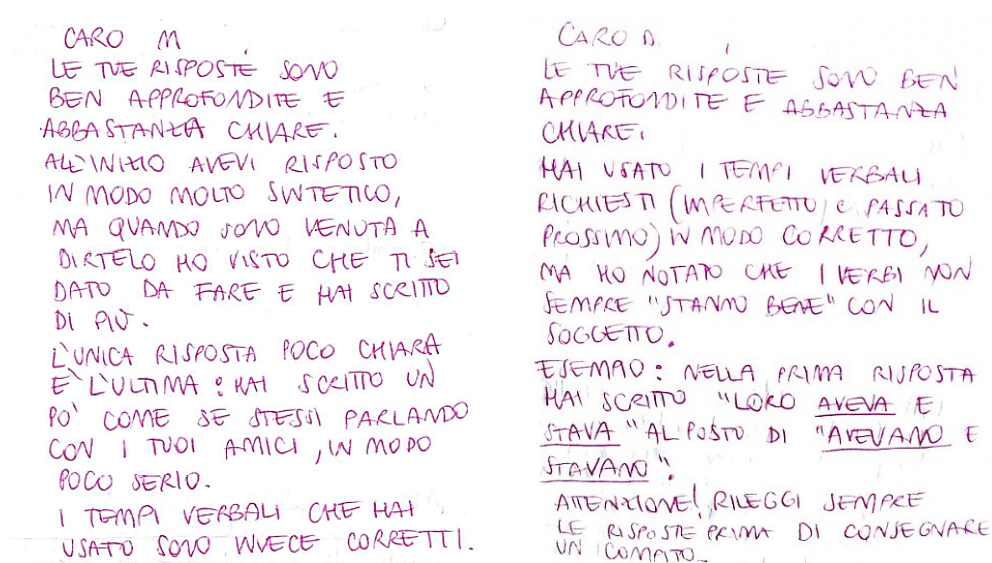 CARO M
LE TUE RISPOSTE SONO
BEN APPROFONDITE E
ABBASTANZA CHIARE.
ALL'INIZIO AVEVI RISPOSTO
IN MODO MOLTO SINTETICO,
MA QUANDO SONO VENUTA A
DIRTELO HO VISTO CHE TI SEI
DATO DA FARE E HAI SCRITTO
DI PIÙ.
L'UNICA RISPOSTA POCO CHIARA
E' L'ULTIMA: HAI SCRITTO UN
PO' COME SE STESSI PARLANDO
CON I TUOI AMICI, IN MODO
POCO SERIO.
I TEMPI VERBALI CHE HAI
USATO SONO INVECE CORRETTI.
CARO D.
LE TUE RISPOSTE SONO BEN
APPROFONDITE E ABBASTANZA
CHIARE.
HAI USATO I TEMPI VERBALI
RICHIESTI (IMPERFETTO E PASSATO
PROSSIMO) IN MODO CORRETTO,
MA HO NOTATO CHE I VERBI NON
SEMPRE "STANNO BENE" CON IL
SOGGETTO.
ESEMPIO: NELLA PRIMA RISPOSTA
HAI SCRITTO "LORO AVEVA E
STAVA" AL POSTO DI "AVEVANO E
STAVANO".
ATTENZIONE! RILEGGI SEMPRE
LE RISPOSTE PRIMA DI CONSEGNARE
UN COMPITO.